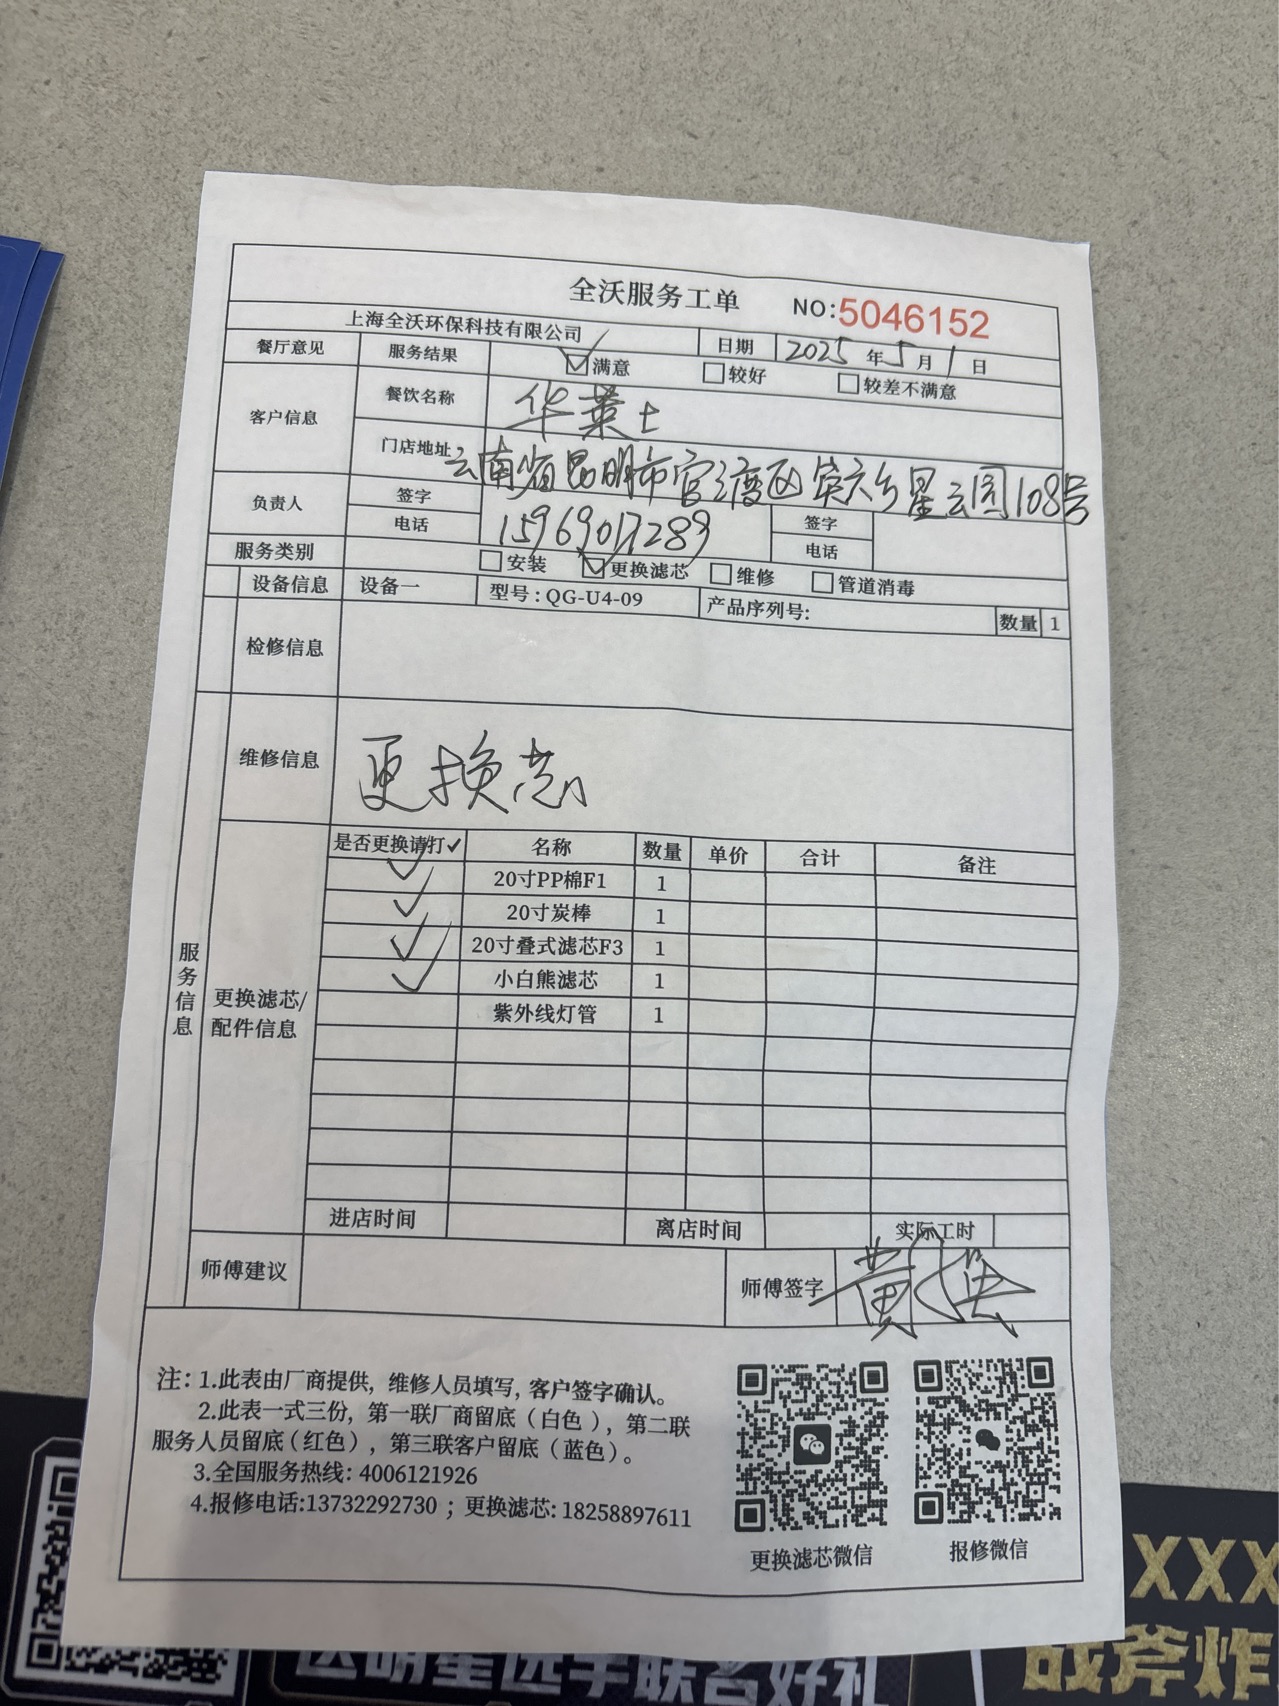 全沃服务工单 NO:5046152
上海全沃环保科技有限公司 日期 2025年5月1日
餐厅意见 服务结果 ☑满意 □较好 □较差不满意
客户信息 餐饮名称 华莱士
门店地址 云南省昆明市官渡区第六乡星云园108号
负责人 签字 签字
电话 15969017289 电话
服务类别 □安装 ☑更换滤芯 □维修 □管道消毒
设备信息 设备一 型号:QG-U4-09 产品序列号: 数量 1
检修信息
维修信息 更换芯
服务信息
更换滤芯/配件信息
是否更换请打✓ 名称 数量 单价 合计 备注
✓ 20寸PP棉F1 1
✓ 20寸炭棒 1
✓ 20寸叠式滤芯F3 1
✓ 小白熊滤芯 1
紫外线灯管 1
进店时间 离店时间 实际工时
师傅建议 师傅签字 黄
注:1.此表由厂商提供,维修人员填写,客户签字确认。
2.此表一式三份,第一联厂商留底(白色),第二联
服务人员留底(红色),第三联客户留底(蓝色)。
3.全国服务热线:4006121926
4.报修电话:13732292730;更换滤芯:18258897611
更换滤芯微信 报修微信
XXX
战斧炸
明星选手联名好礼